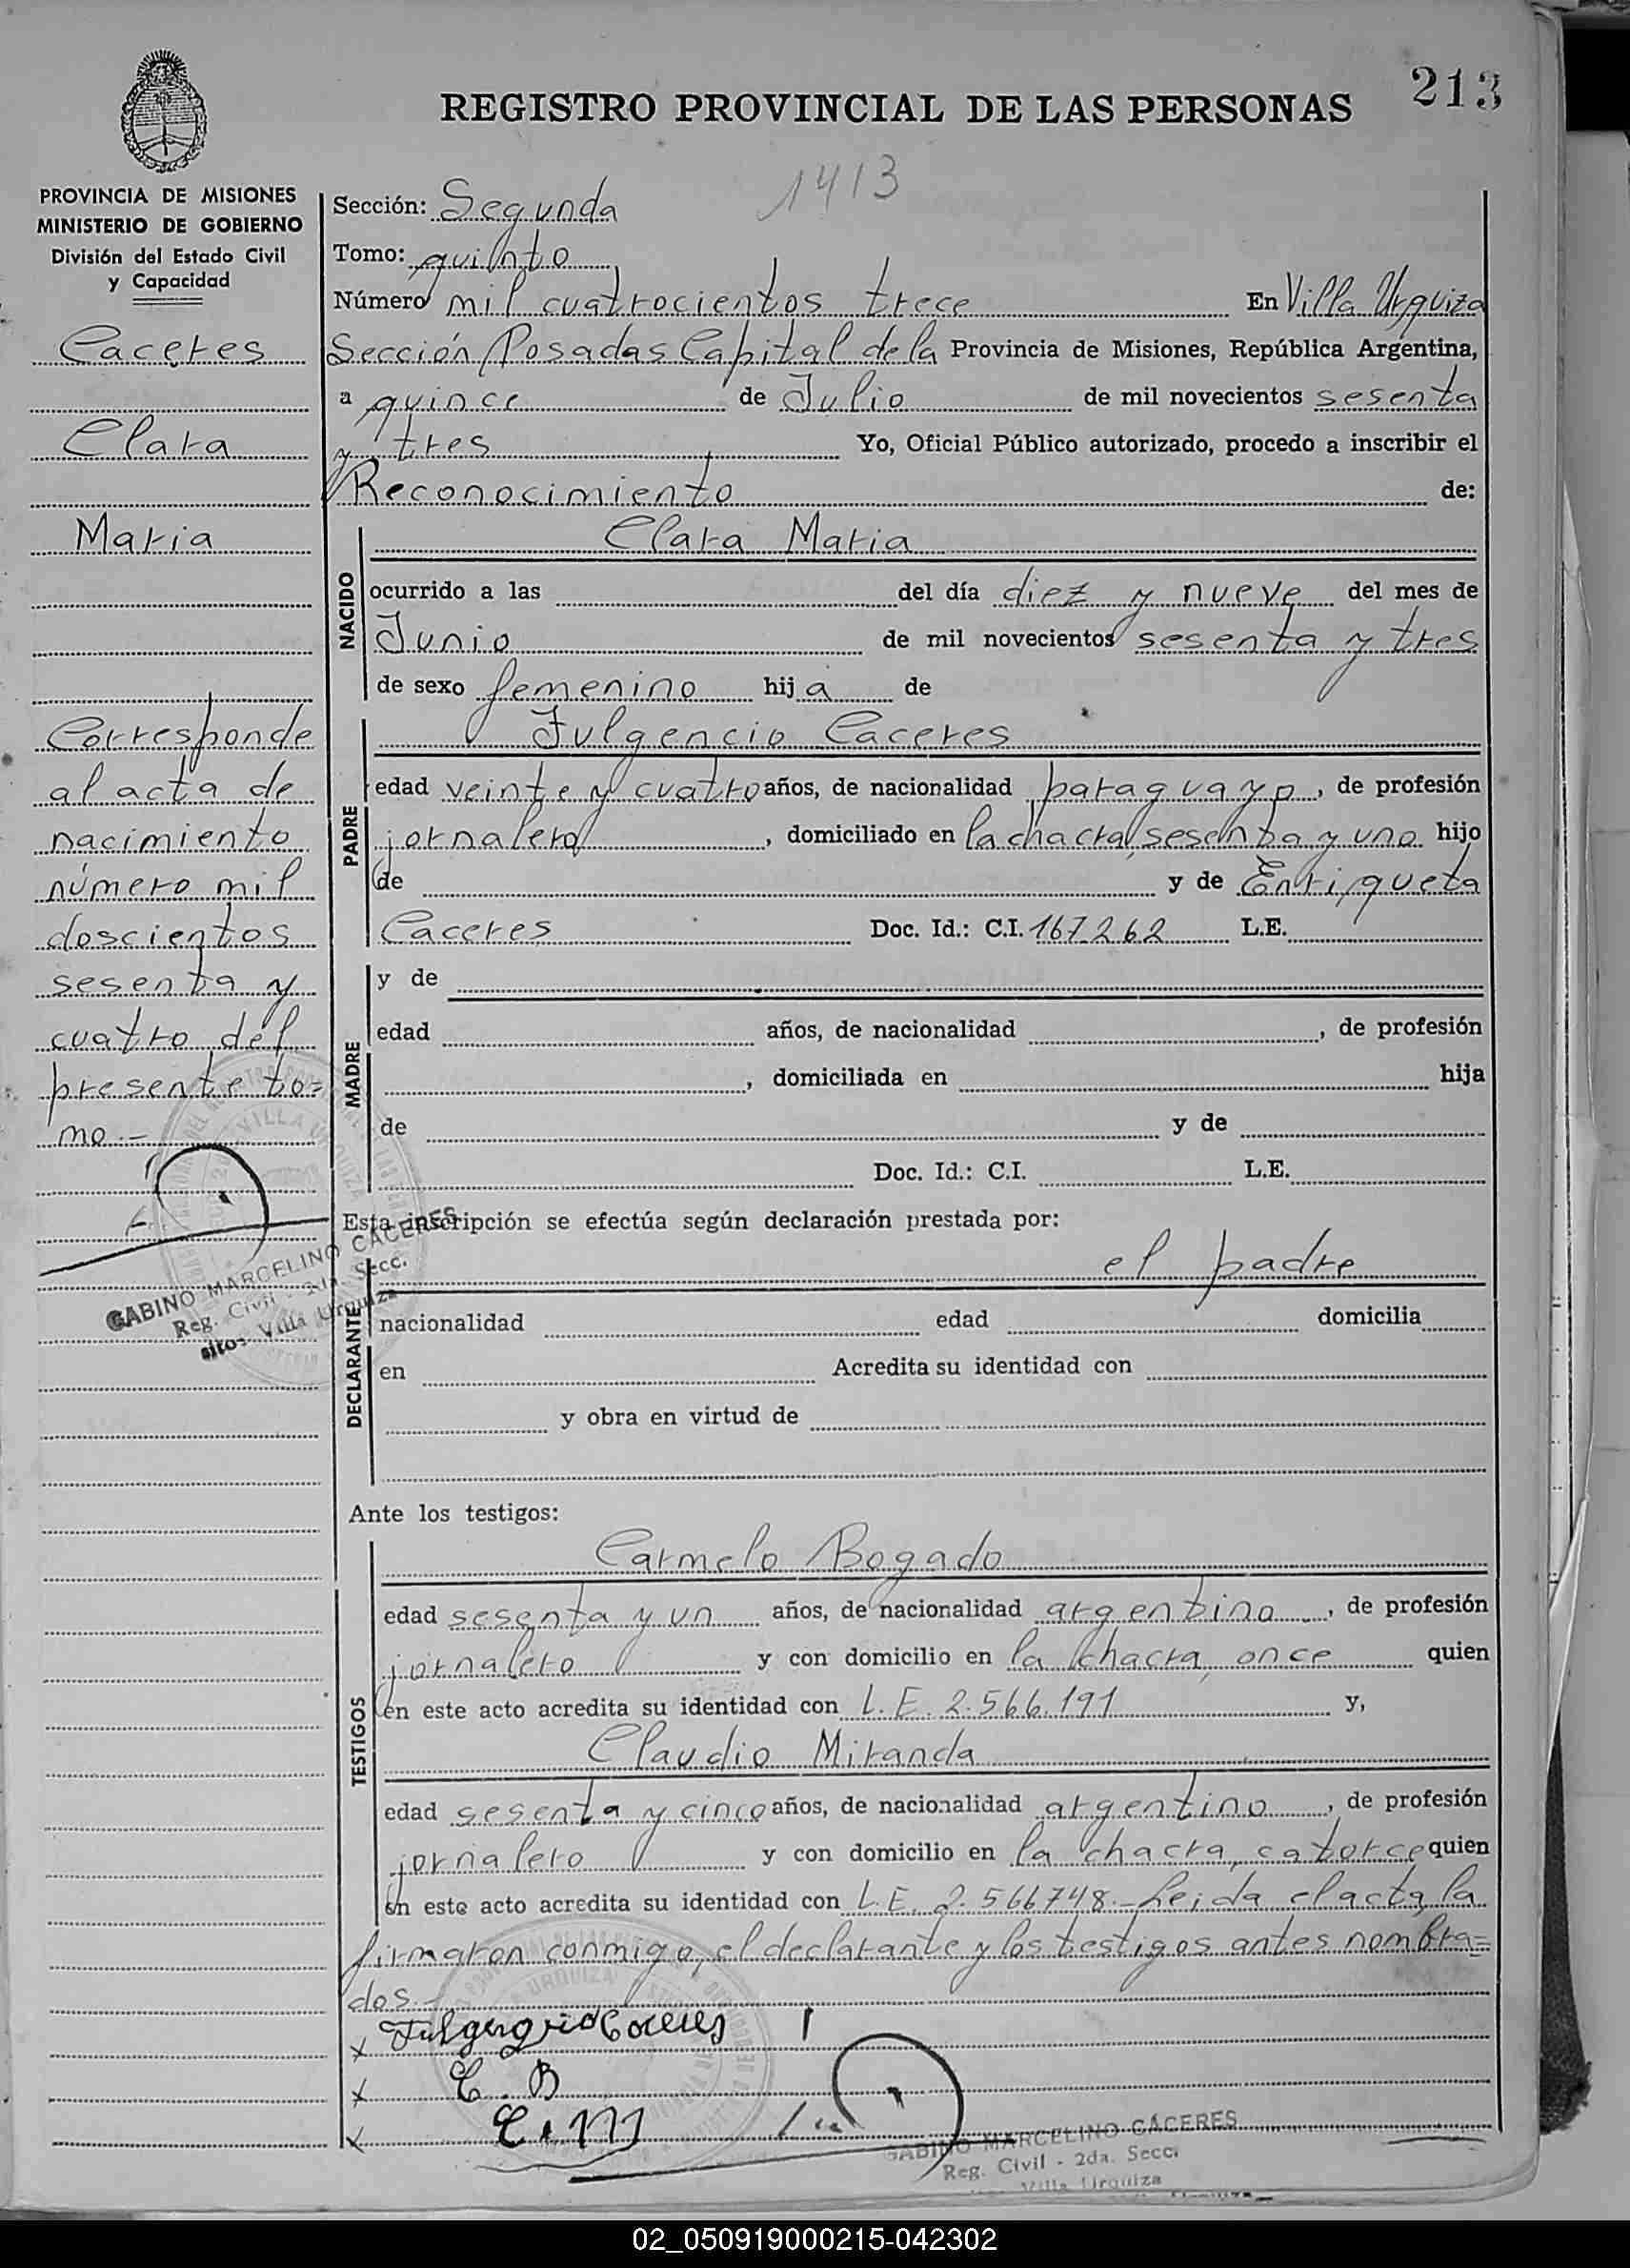 213
REGISTRO PROVINCIAL DE LAS PERSONAS
1413
PROVINCIA DE MISIONES
MINISTERIO DE GOBIERNO
División del Estado Civil
y Capacidad
Caceres
Clara
Maria
Corresponde
al acta de
nacimiento
número mil
doscientos
sesenta y
cuatro del
presente to=
mo.-
GABINO MARCELINO CÁCERES
Reg. Civil - 2da. Secc.
Villa Urquiza
Sección: Segunda
Tomo: quinto
Número mil cuatrocientos trece En Villa Urquiza
Sección Posadas Capital de la Provincia de Misiones, República Argentina,
a quince de Julio de mil novecientos sesenta
y tres Yo, Oficial Público autorizado, procedo a inscribir el
Reconocimiento de:
NACIDO
Clara Maria
ocurrido a las del día diez y nueve del mes de
Junio de mil novecientos sesenta y tres
de sexo femenino hija de
PADRE
Fulgencio Caceres
edad veinte y cuatro años, de nacionalidad paraguayo, de profesión
jornalero, domiciliado en la chacra, sesenta y uno hijo
de y de Enriqueta
Caceres Doc. Id.: C.I. 167.262 L.E.
MADRE
y de
edad años, de nacionalidad , de profesión
, domiciliada en hija
de y de
Doc. Id.: C.I. L.E.
Esta inscripción se efectúa según declaración prestada por:
DECLARANTE
el padre
nacionalidad edad domicilia
en Acredita su identidad con
y obra en virtud de
Ante los testigos:
TESTIGOS
Carmelo Bogado
edad sesenta y un años, de nacionalidad argentino, de profesión
jornalero y con domicilio en la chacra, once quien
en este acto acredita su identidad con L.E. 2.566.191 y,
Claudio Miranda
edad sesenta y cinco años, de nacionalidad argentino, de profesión
jornalero y con domicilio en la chacra, catorce quien
en este acto acredita su identidad con L.E. 2.566748.- Leida el acta, la
firmaron conmigo, el declarante y los testigos antes nombra=
dos.-
x Fulgencio Caceres
x C. B
x C. M
GABINO MARCELINO CÁCERES
Reg. Civil - 2da. Secc.
Villa Urquiza
02_050919000215-042302